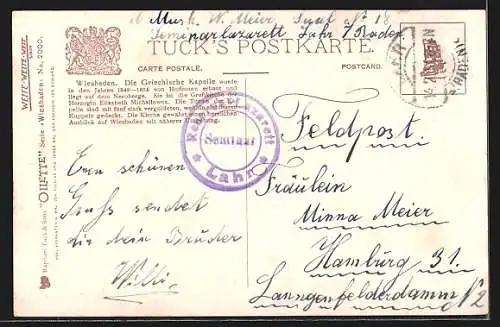 Musk. W. Meier, Saal No 18
Seminarlazarett Lahr / Baden
TUCK'S POSTKARTE.
CARTE POSTALE. POSTCARD.
Wiesbaden. Die Griechische Kapelle wurde
in den Jahren von Hofmann erbaut und
liegt auf dem Neroberge. Sie ist die
Herzogin Elisabeth Michailowna. Die
sind mit fünf stark vergoldeten,
Kuppeln gedeckt. Die Kirche gewährt einen herrlichen
Ausblick auf Wiesbaden mit näherer Umgebung.
WEITE-WEITE-WELT
"OILETTE" Serie „Wiesbaden“ No. 
Raphael Tuck & Sons'
Reservelazarett
Seminar
Lahr
Feldpost.
Fräulein
Minna Meier
Hamburg 31.
Langenfelderdamm No 2
Einen schönen
Gruß sendet
dir dein Bruder
Willi.